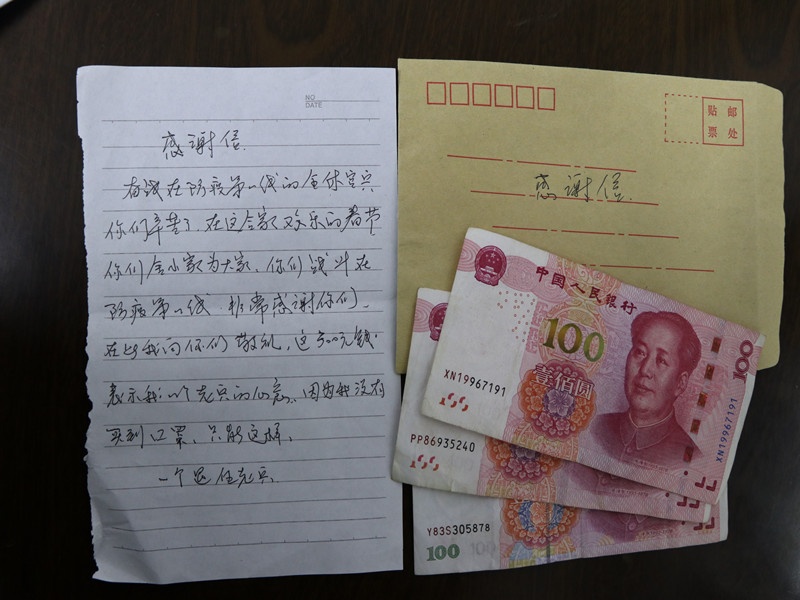 NO
DATE
感谢信
奋战在防疫第一线的全体官兵
你们辛苦了,在这合家欢乐的春节
你们舍小家为大家,你们战斗在
防疫第一线,非常感谢你们,
在此我向你们敬礼,这300元钱
表示我一个老兵的心意,因为我没有
买到口罩,只能这样,
一个退伍老兵
贴邮
票处
感谢信
中国人民银行
100
壹佰圆
XN19967191
100
XN19967191
PP86935240
Y83S305878
100